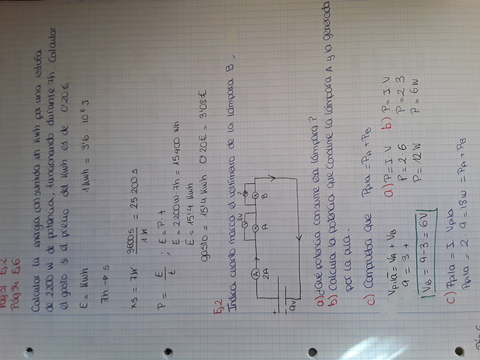 Pág 31 Ej,2
Pág 34 Ej,6
Calcular la energía consumida en kwh por una estufa
de 2200 W de potencia, funcionando durante 7h. Calcular
el gasto si el precio del kwh es de 0'20€
E = kwh
1 kwh = 3'6 10⁶ J
7h → s
xs = 7h · 3600s / 1h = 25 200 s
P = E / t ; E = P · t
E = 2200W 7h = 15400 Wh
E = 15'4 kwh
gasto = 15'4 kwh 0'20€ = 3'08€
Ej,2
Indica cuanto marca el voltímetro de la lámpara B.
3V
A
B
A
2A
9V
+
a) ¿Que potencia consume esa lámpara?
b) Calcula la potencia que consume la lámpara A y la generada
por la pila.
c) Comprueba que Ppila = PA + PB
Vpila = VA + VB
9 = 3 +
VB = 9 - 3 = 6V
a) P = I V
P = 2 6
P = 12W
b) P = I V
P = 2 3
P = 6W
c) Ppila = I Vpila
Ppila = 2 9 = 18W = PA + PB